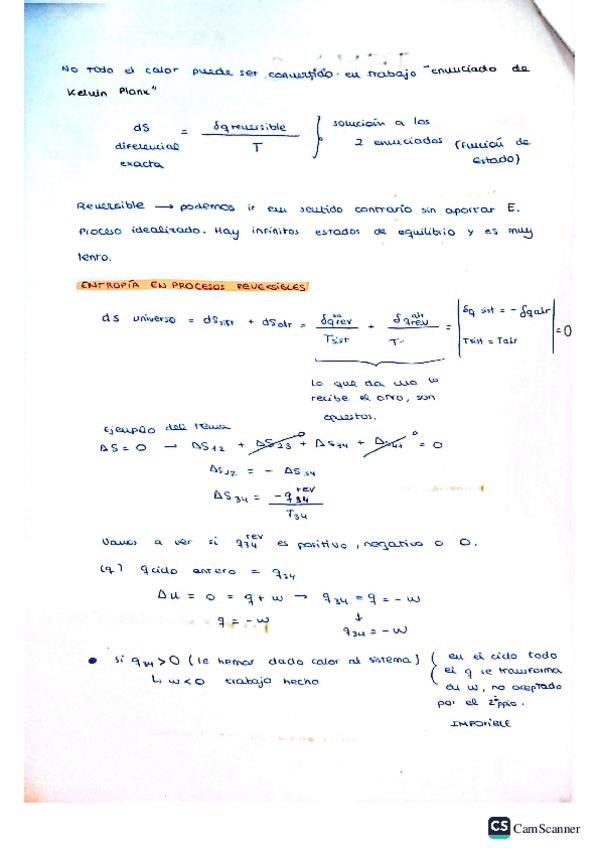 No todo el calor puede ser convertido en trabajo "enunciado de
Kelvin Planx"
dS = δq reversible / T } solución a los
diferencial 2 enunciados (función de
exacta estado)
Reversible → podemos ir en sentido contrario sin aportar E.
Proceso idealizado. Hay infinitos estados de equilibrio y es muy
lento.
ENTROPÍA EN PROCESOS REVERSIBLES
dS universo = dSsist + dSalr = δq rev / Tsist + δq alr rev / T = | δq sist = - δq alr | = 0
| Tsist = Talr |
Lo que da uno lo
recibe el otro, son
opuestos.
Ejemplo del tema
ΔS = 0 → ΔS12 + ΔS23 0 + ΔS34 + ΔS41 0 = 0
ΔS12 = - ΔS34
ΔS34 = -q34 rev / T34
Vamos a ver si q34 rev es positivo, negativo o 0.
(q) qciclo entero = q34
Δu = 0 = q + w → q34 = q = - w
q = - w ↓
q34 = - w
• Si q34 > 0 (le hemos dado calor al sistema) { en el ciclo todo
↳ w < 0 trabajo hecho el q se transforma
en w, no aceptado
por el 2º ppio.
IMPOSIBLE
CS CamScanner